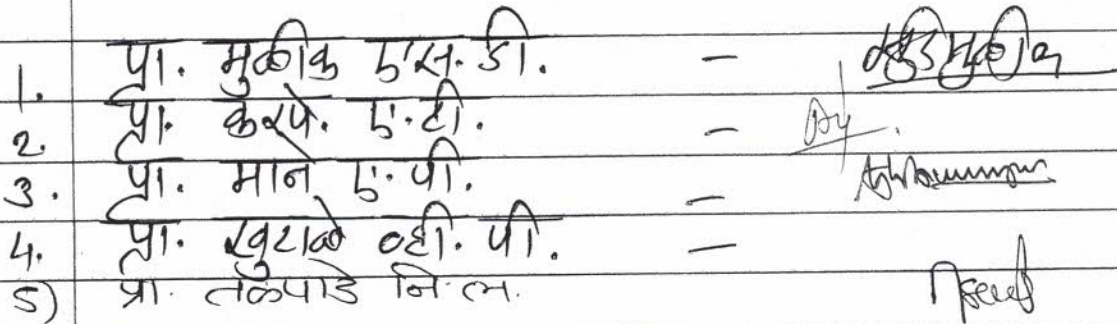 1. प्रा. मुळीक एस. डी. -
2. प्रा. करपे. ए. टी. -
3. प्रा. माने ए. पी. -
4. प्रा. खुटाळे व्ही. पी. -
5) प्रा. तळपाडे नि. ल.